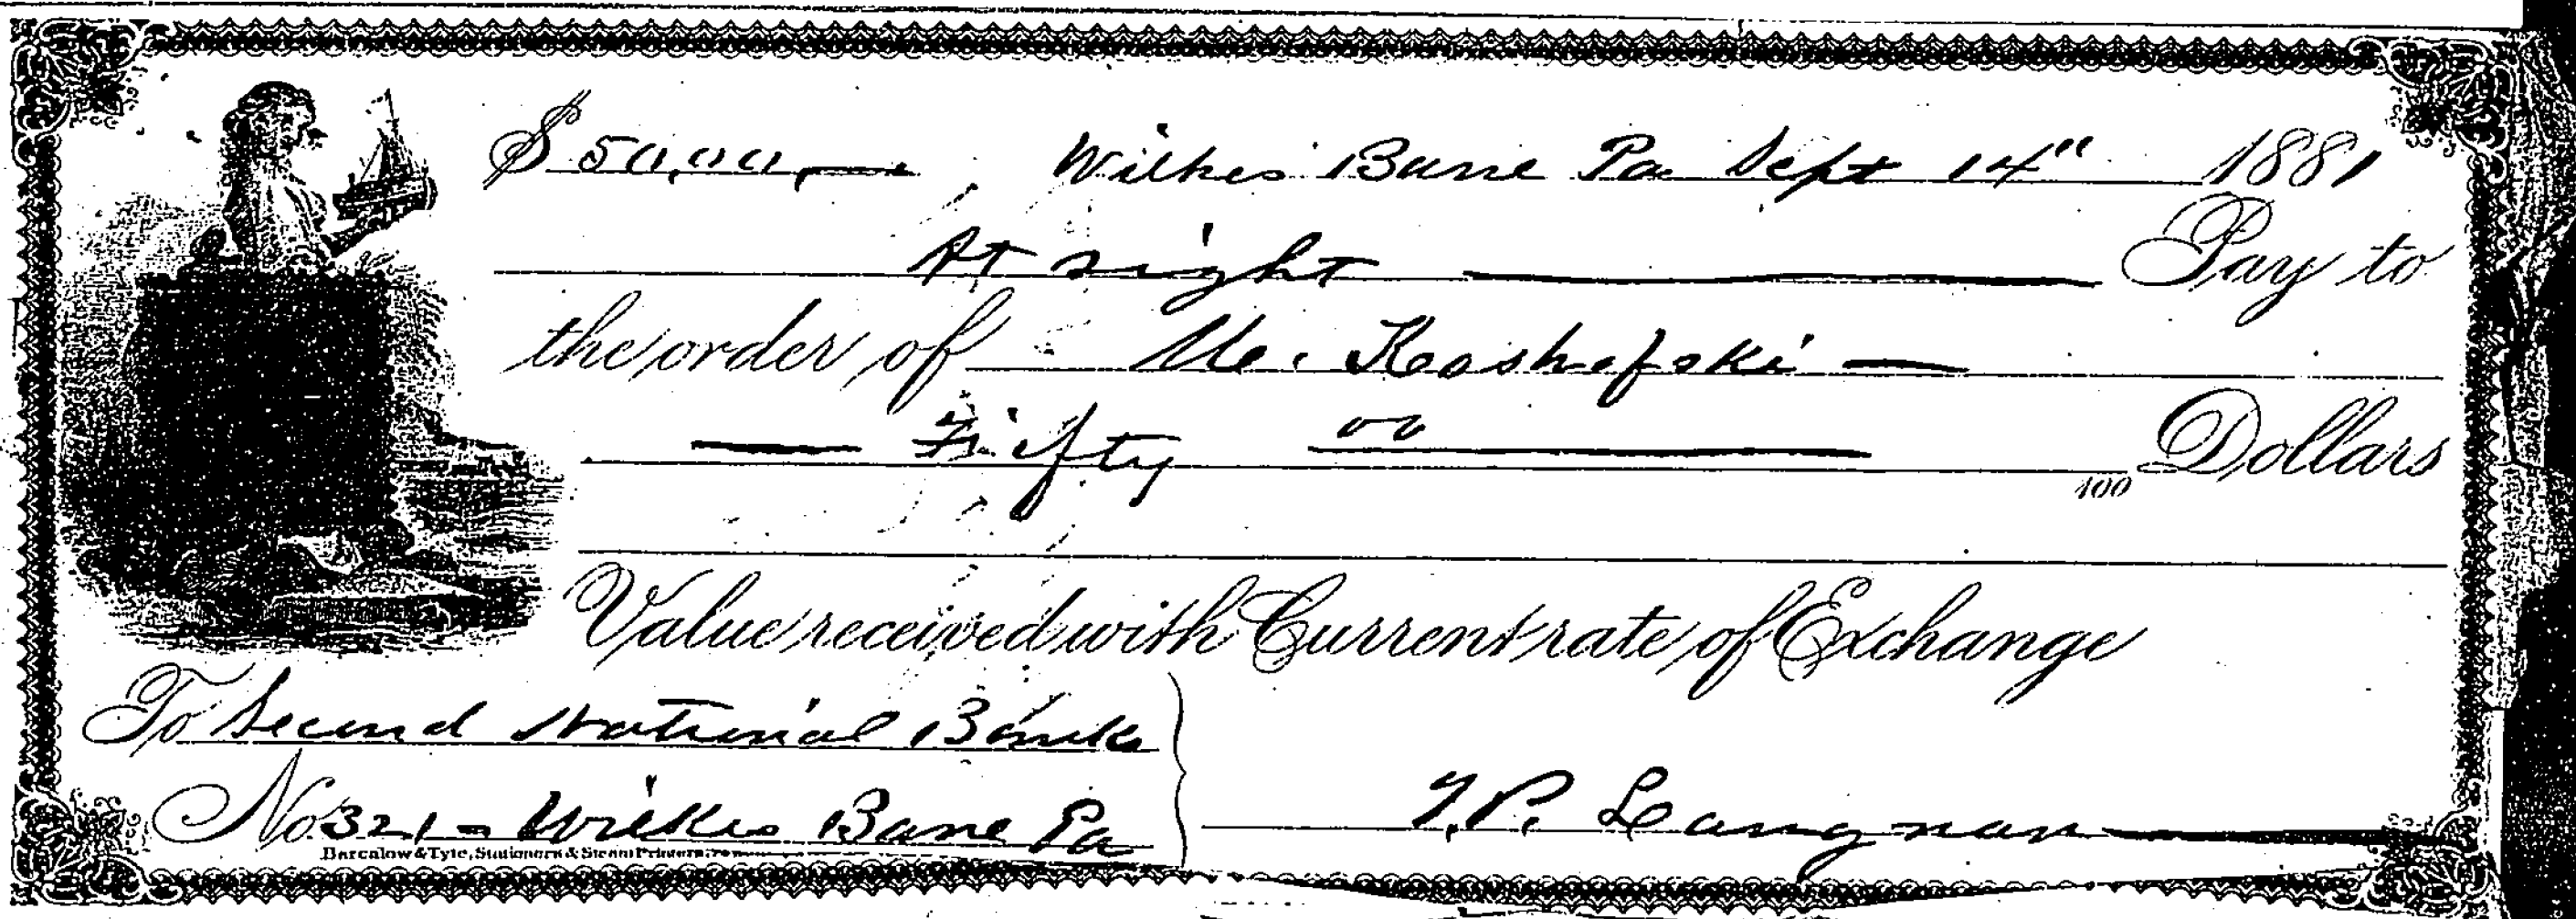 $ 50,00, Wilkes Barre Pa Sept 14" 1881
At sight Pay to
the order of M. Koshofski
Fifty 00/100 Dollars
Value received with Current rate of Exchange
To Second National Bank
No 321 - Wilkes Barre Pa
T.P. Langnan
Barcalow & Tyte, Stationers & Steam Printers